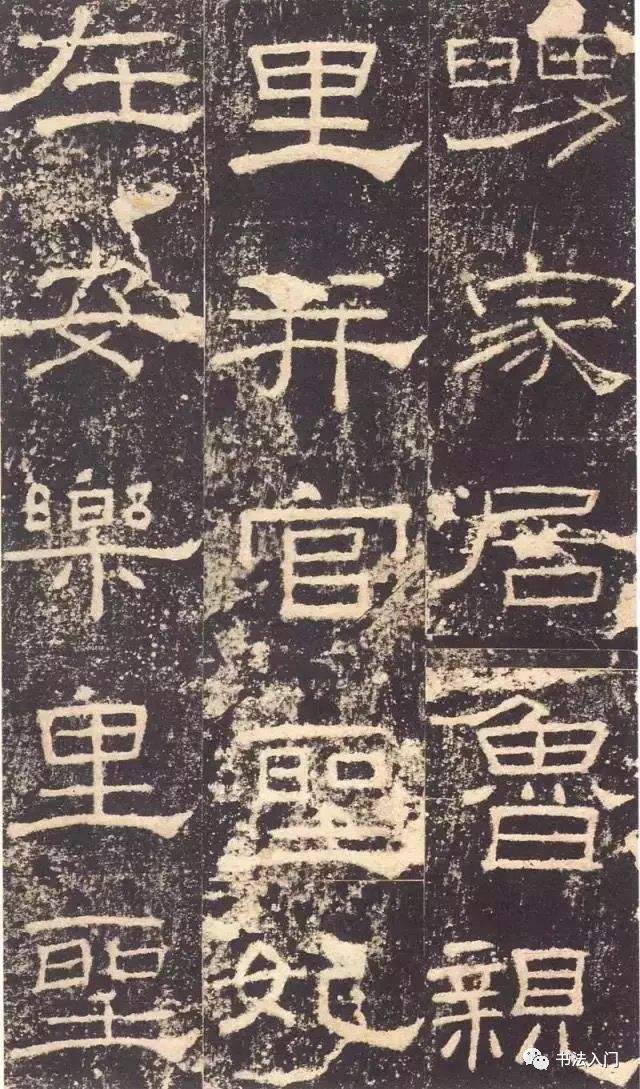 舅家居魯親
里并官聖妃
在安樂里聖
书法入门